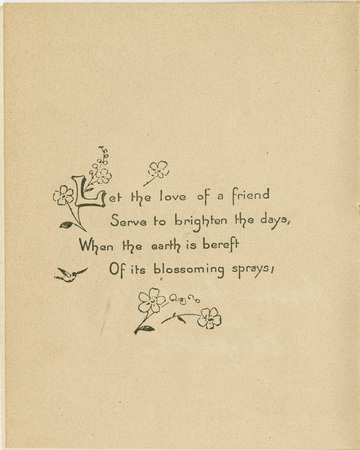 Let the love of a friend
Serve to brighten the days,
When the earth is bereft
Of its blossoming sprays;